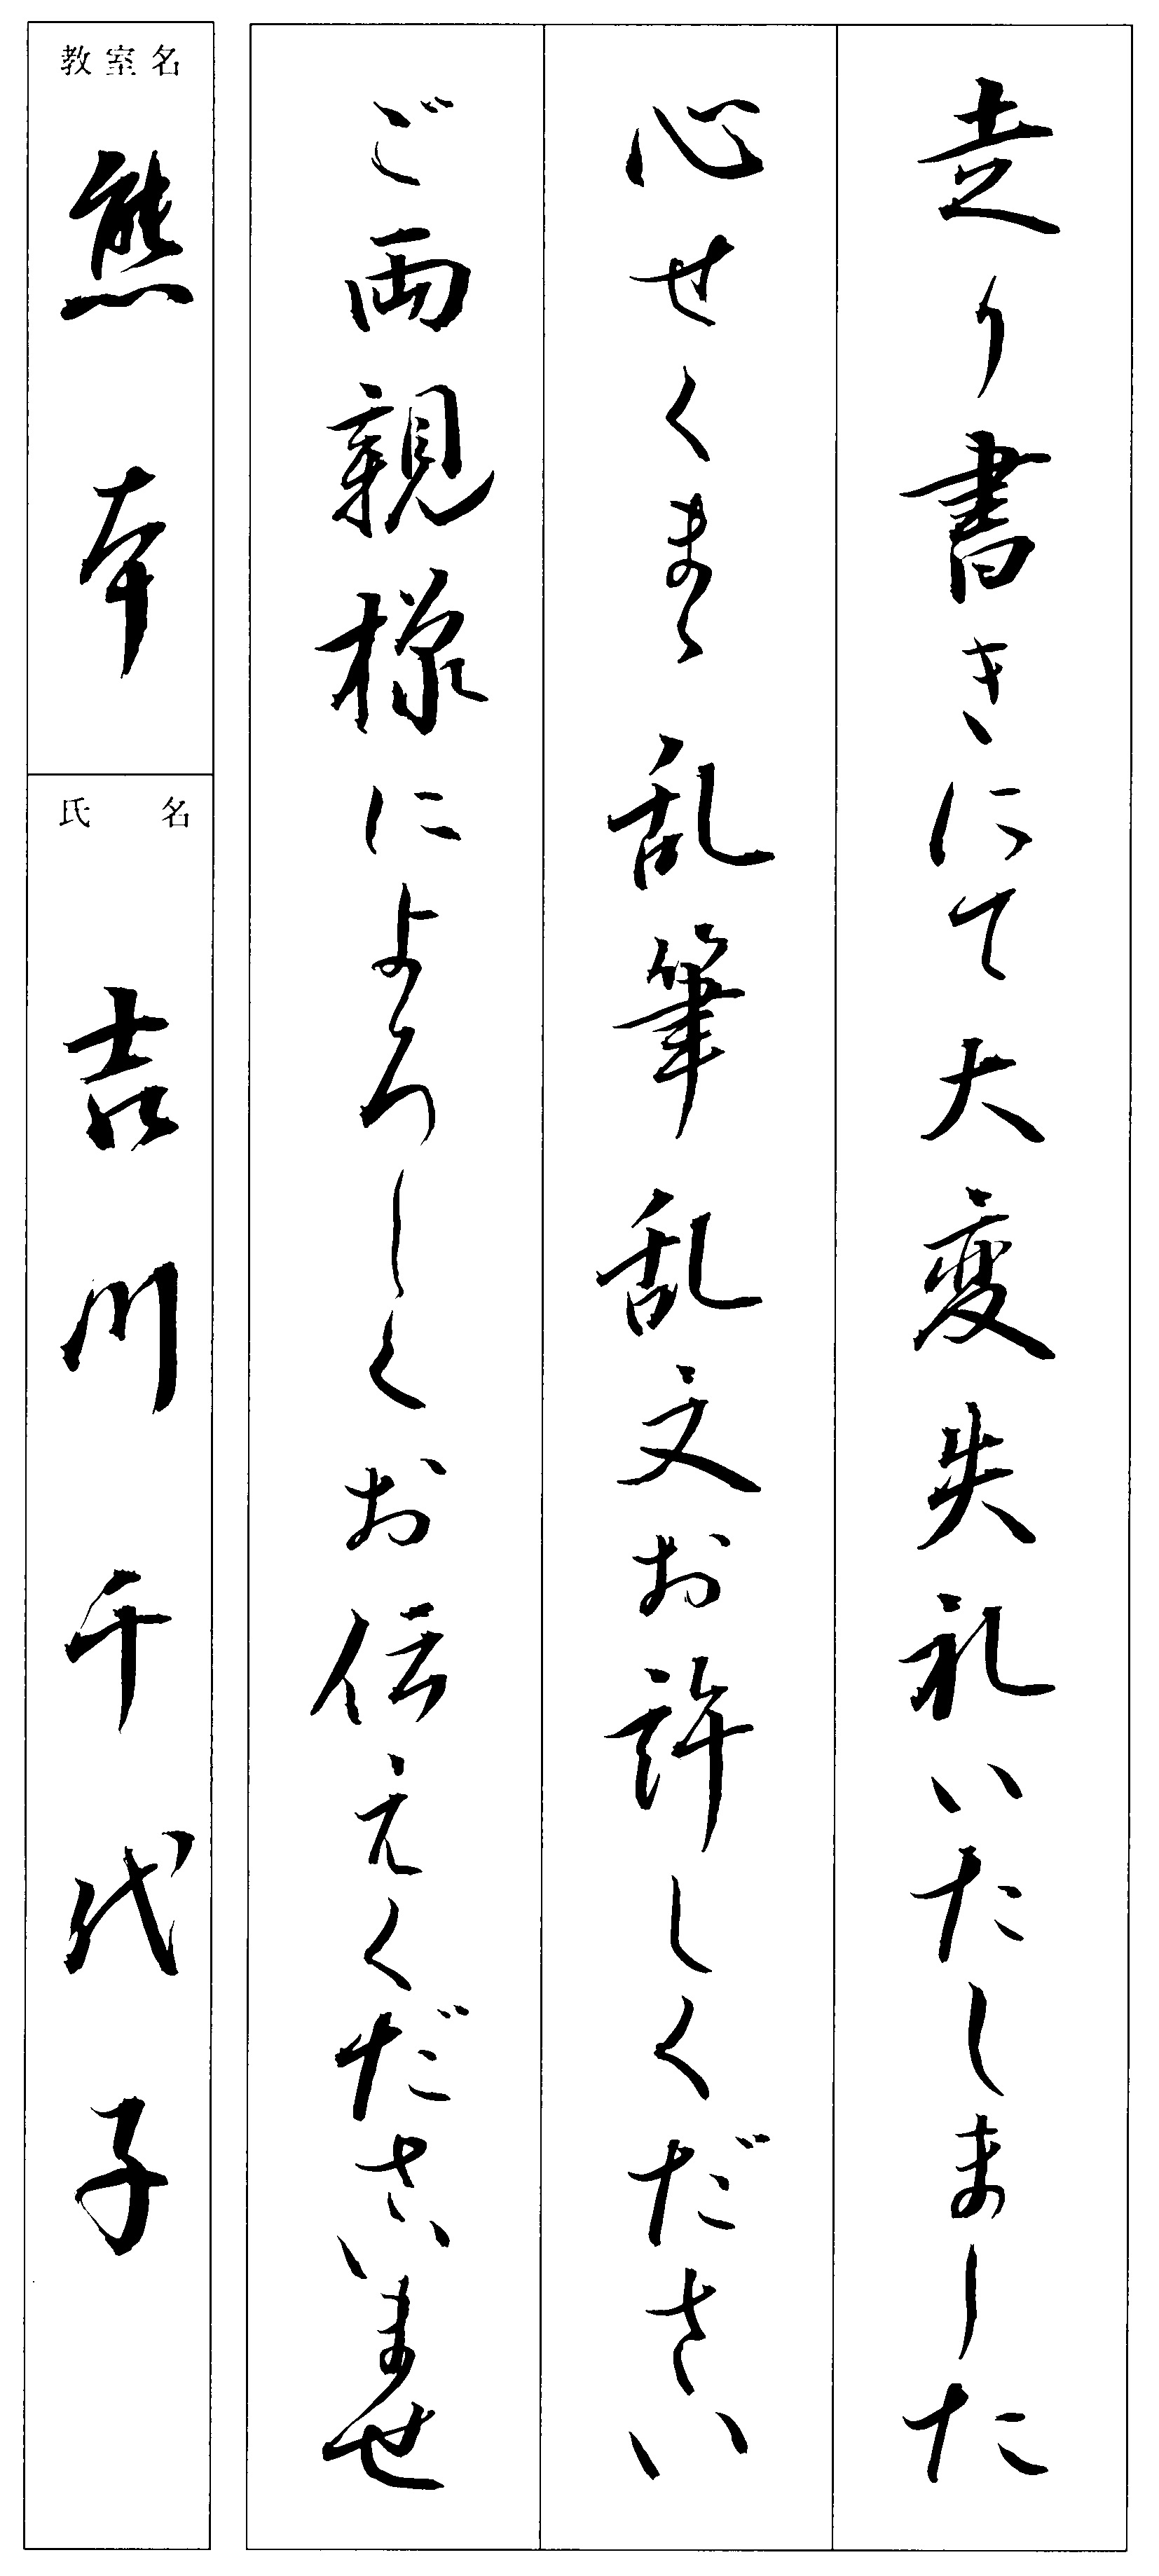 走り書きにて大変失礼いたしました
心せくまゝ乱筆乱文お許しください
ご両親様によろしくお伝えくださいませ
教室名
熊本
氏名
吉川千代子